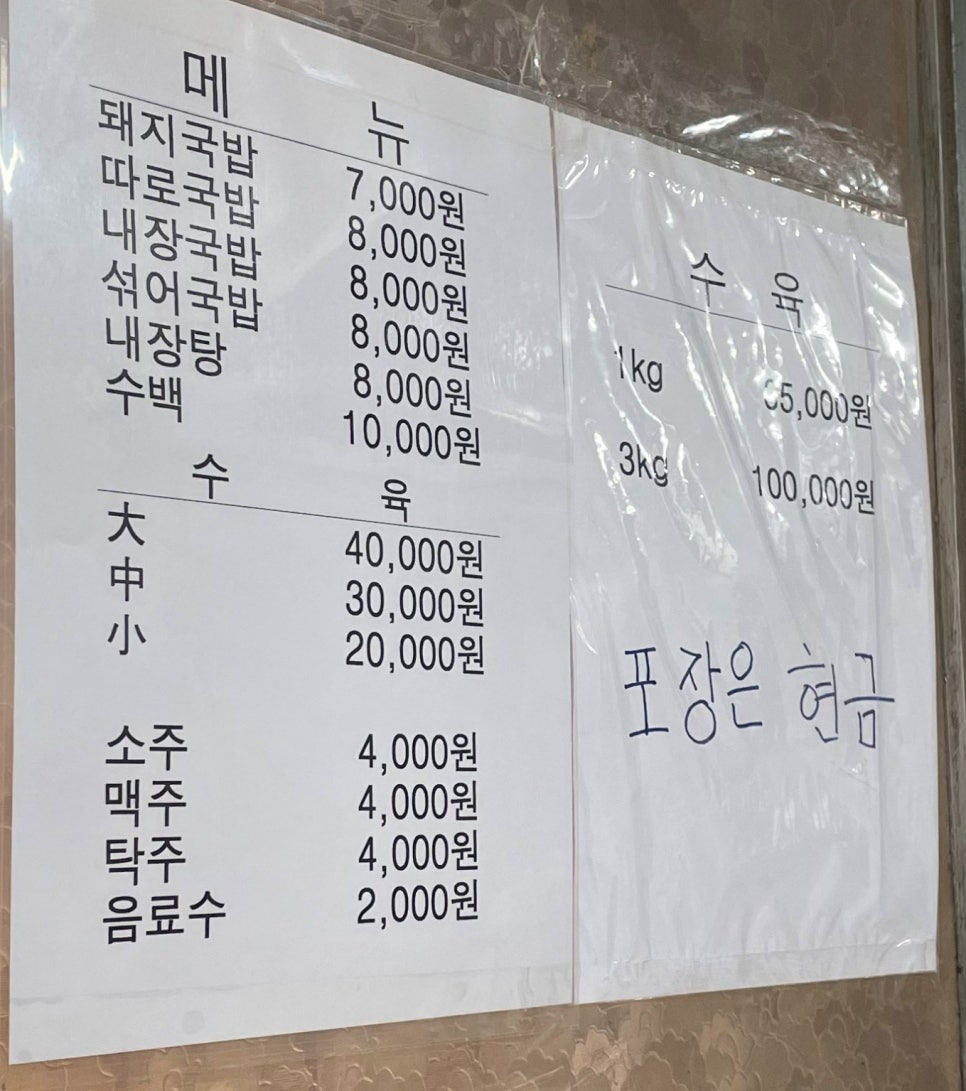 메 뉴
돼지국밥 7,000원
따로국밥 8,000원
내장국밥 8,000원
섞어국밥 8,000원
내장탕 8,000원
수백 10,000원
수 육
大 40,000원
中 30,000원
小 20,000원
소주 4,000원
맥주 4,000원
탁주 4,000원
음료수 2,000원
수 육
1kg
3kg 100,000원
포장은 현금